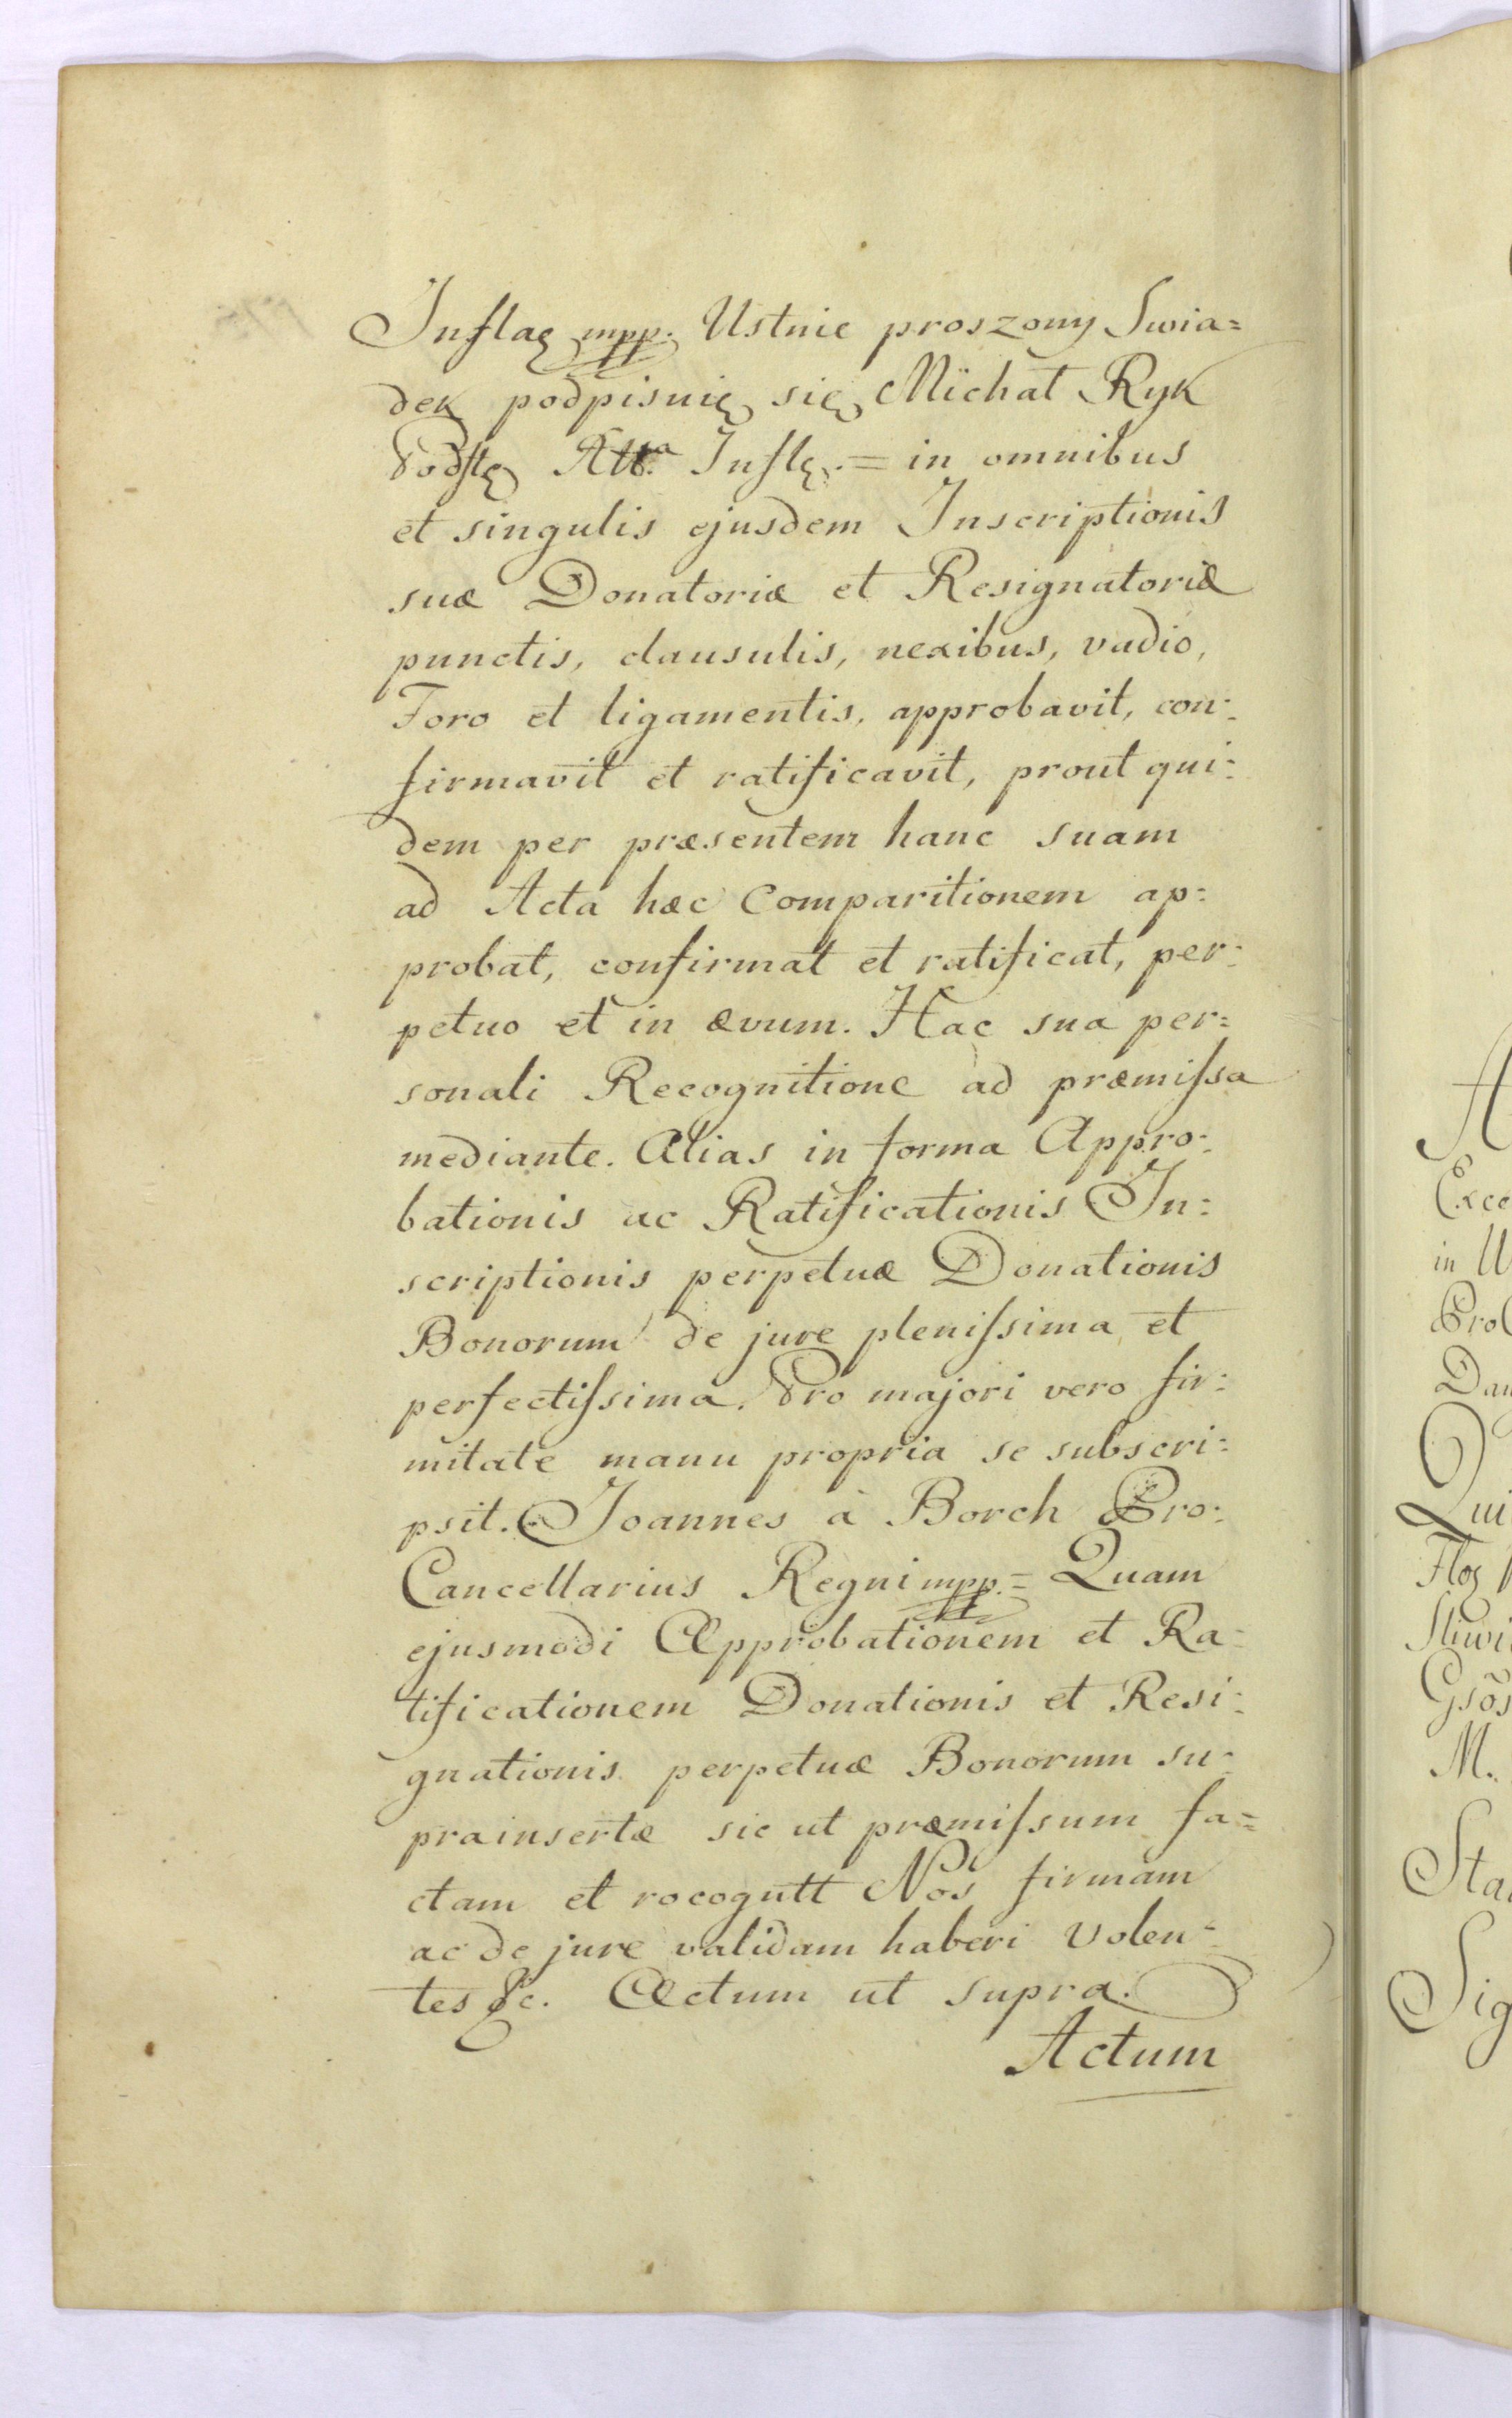 Inflaę mpp. Ustnie proszony Swia=
dek podpisuię się Michał Ryk
Podstę Inflę. = in omnibus
et singulis ejusdem Inscriptionis
suæ Donatoriæ et Resignatoriæ
punctis, clausulis, nexibus, vadio,
Foro et ligamentis, approbavit, con=
firmavit et ratificavit, prout qui=
dem per præsentem hanc suam
ad Acta hæc Comparitionem ap=
probat, confirmat et ratificat, per=
petuo et in ævum. Hac sua per=
sonali Recognitione ad præmiſsa
mediante. Alias in forma Appro=
bationis ac Ratificationis In=
scriptionis perpetuæ Donationis
Bonorum de jure pleniſsima et
perfectiſsima. Pro majori vero fir=
mitate manu propria se subscri=
psit. Joannes à Borch Pro=
Cancellarius Regni mpp. = Quam
ejusmodi Approbationem et Ra=
tificationem Donationis et Resi=
gnationis perpetuæ Bonorum su=
prainsertæ sic ut præmiſsum fa=
ctam et rocogntt Nos firmam
ac de jure validam haberi volen=
tes &c. Actum ut supra.
Actum
A
Exce
in
Pro
Dan
Qui
Flos
Sliwi
Gsõs
M.
Sta
Sig